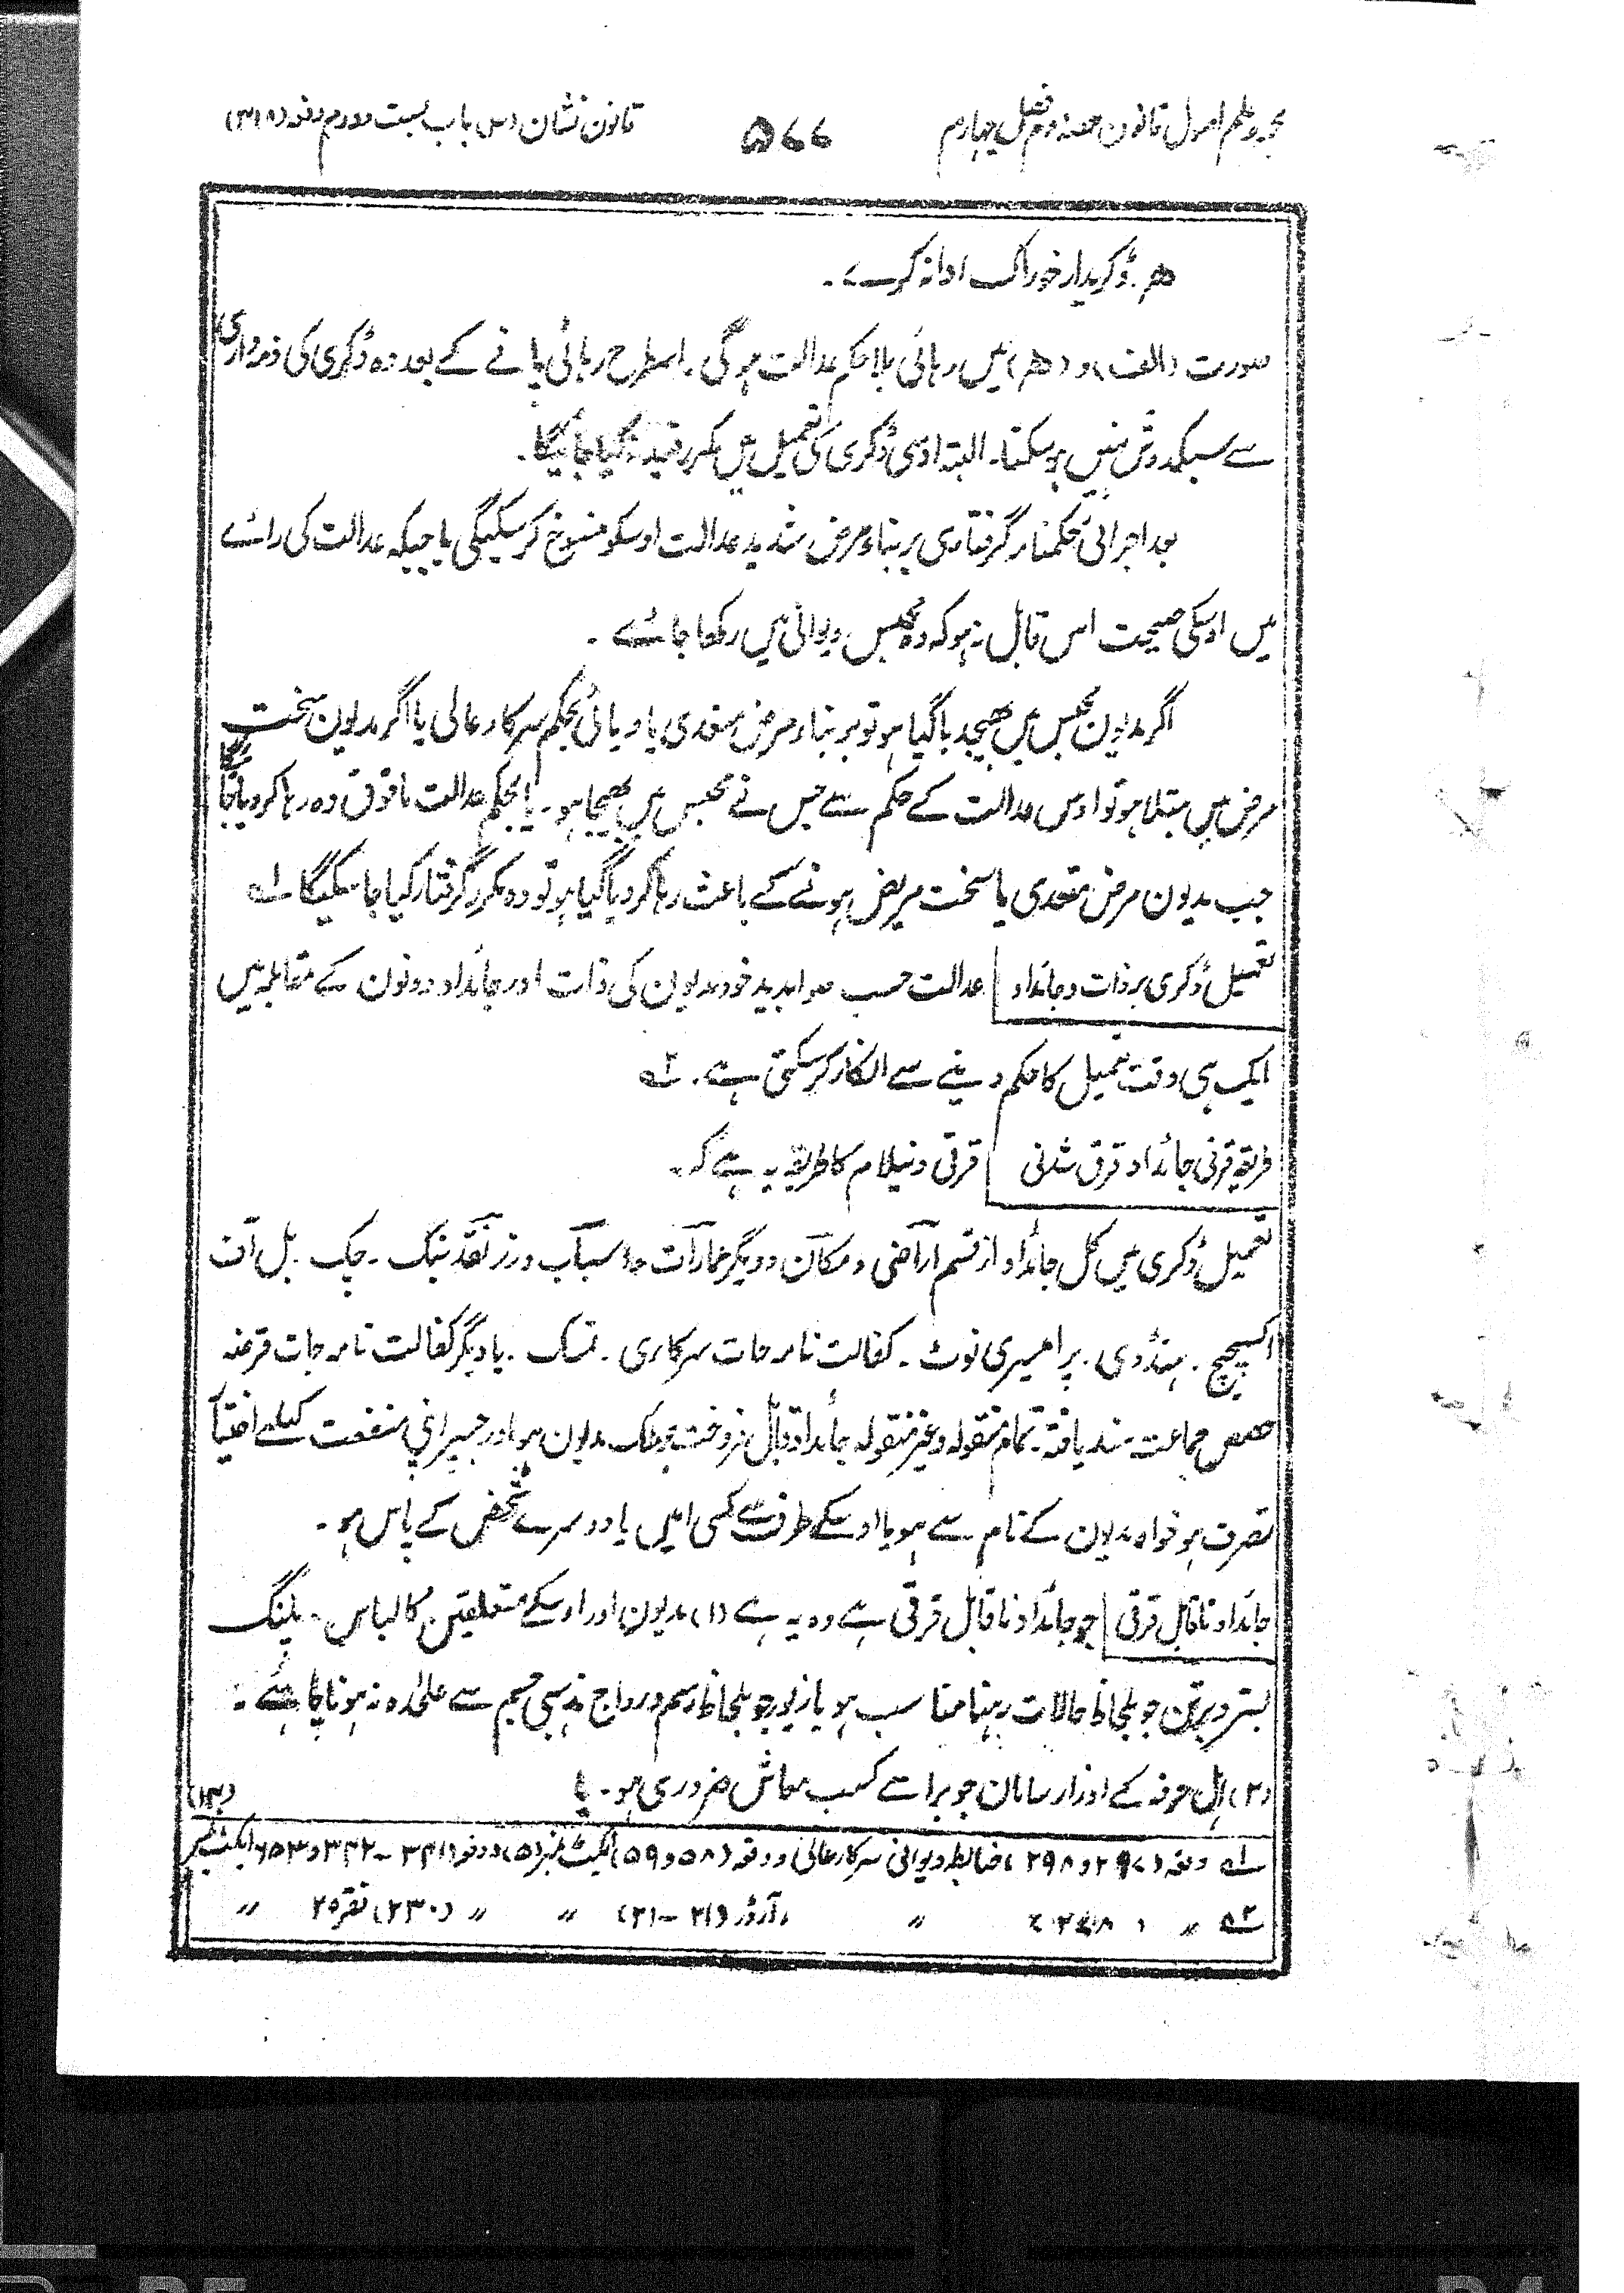 مجموعہ علم اصول قانون حصہ دوم فصل چہارم ۵۶۶ قانون نشان دس باب بست دوم دفعہ (۳۱۸)
ھ۔ ڈگریدار خوراک ادا نہ کرے۔
صورت (الف) و (ھ) میں رہائی بلا حکم عدالت ہوگی۔ اسطرح رہائی پانے کے بعد وہ ڈگری کی ذمہ داری
سے سبکدوش نہیں ہوسکتا۔ البتہ اوسی ڈگری کی تعمیل میں مکرر قید نہ کیا جائیگا۔
بعد اجرائی حکمنامہ گرفتاری بربناء مرض شدید عدالت اوسکو منسوخ کرسکیگی یا جبکہ عدالت کی رائے
میں اوسکی صحیت اس قابل نہ ہو کہ وہ محبس دیوانی میں رکھا جائے۔
اگر مدیون محبس میں بھیجدیا گیا ہو تو بربناء مرض متعدی یا وبائی بحکم سرکار عالی یا اگر مدیون سخت
مرض میں مبتلا ہو تو اوس عدالت کے حکم سے جس نے محبس میں بھیجا ہو۔ یا بحکم عدالت مافوق وہ رہا کردیا جائیگا
جب مدیون مرض متعدی یا سخت مریض ہونے کے باعث رہا کردیا گیا ہو تو وہ مکرر گرفتار کیا جاسکیگا ؎۱
تعمیل ڈگری بر ذات و جائداد عدالت حسب صوابدید خود مدیون کی ذات اور جائداد دونون کے مقابلہ میں
ایک ہی وقت تعمیل کا حکم دینے سے انکار کرسکتی ہے۔ ؎۲
طریقہ قرقی جائداد قرق شدنی قرقی و نیلام کا طریقہ یہ ہے کہ۔
تعمیل ڈگری میں کل جائداد از قسم اراضی و مکان و دیگر عمارات و اسباب و زر نقد بنک۔ چک۔ بل آف
اکسچینج۔ ہنڈوی۔ پرامیسری نوٹ۔ کفالت نامہ جات سرکاری۔ تمسک۔ یا دیگر کفالت نامہ جات قرضہ
حصص جماعت سند یافتہ۔ تمام منقولہ و غیر منقولہ جائداد قابل فروخت جو ملک مدیون ہو اور جسپر اپنی منفعت کیلئے اختیار
تصرف ہو خواہ مدیون کے نام سے ہو یا اوسکے طرف سے کسی امین یا دوسرے شخص کے پاس ہو۔
جائداد ناقابل قرقی جو جائداد ناقابل قرقی ہے وہ یہ ہے (۱) مدیون اور اوسکے متعلقین کا لباس۔ پلنگ
بستر و برتن جو بلحاظ حالات رہنا مناسب ہو یا زیور جو بلحاظ رسم و رواج مذہبی جسم سے علیٰحدہ نہ ہونا چاہئے۔
(۲) اہل حرفہ کے اوزار سامان جو براے کسب معاش ضروری ہو۔ یا (۱۳)
؎۱ دفعہ (۲۹۷ و ۲۹۸) ضابطہ دیوانی سرکار عالی و دفعہ (۵۸ و ۵۹) ایکٹ نمبر (۵) و دفعہ (۳۴۱ - ۳۴۲ و ۶۵۳) ایکٹ نمبر
؎۲ 〃 〃 آرڈر (۲۱ - ۲۱) 〃 〃 (۲۳۰) فقرہ ۲۵ 〃